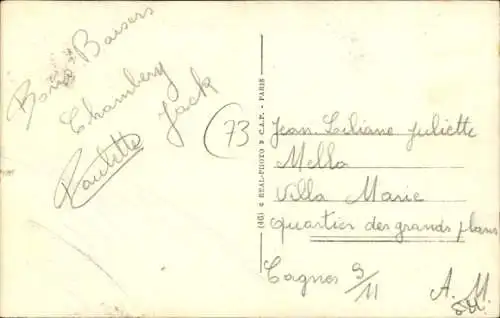 Bons Baisers
Chambery
Paulette Jack
73
(4G) © REAL-PHOTO C.A.P. - PARIS
Jean-Liliane Juliette
Mella
Villa Marie
quartier des grands plans
Cagnes 9/11 A.M.